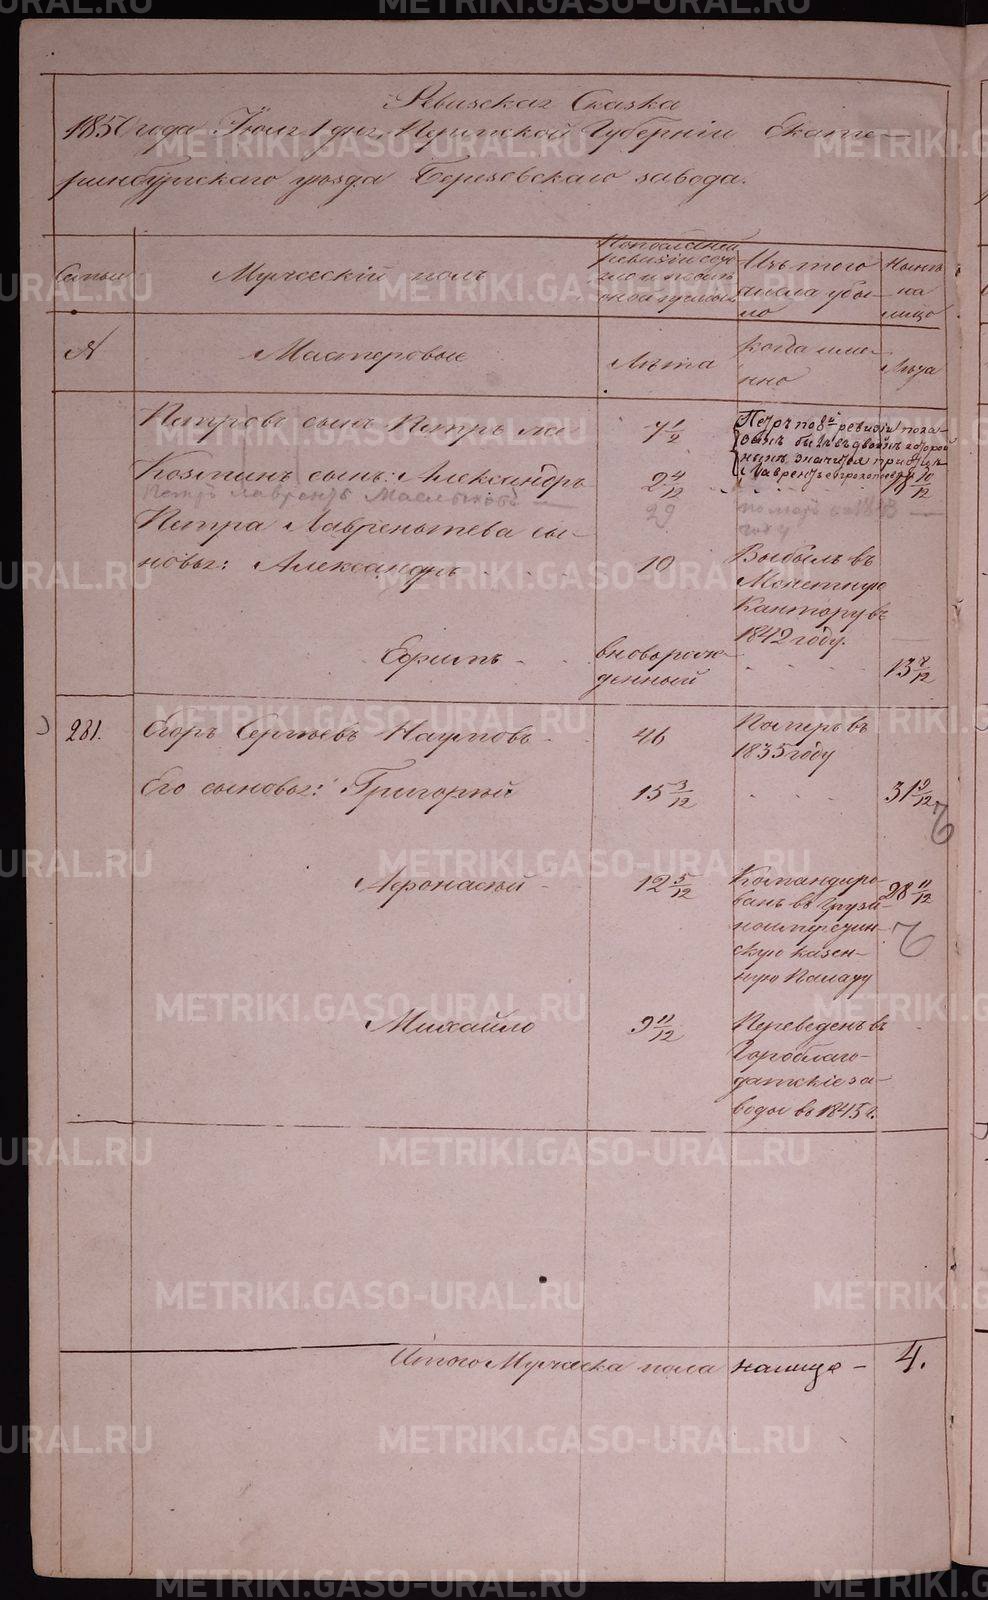 Ревизская Сказка
1850 года Іюля 1 дня, Пермской Губерніи Екате-
ринбургскаго уѣзда Березовскаго завода.
Семьи
Мужескій полъ
По последней
ревизіи состо-
яло и послѣ
оной прибыло
Изъ того
числа убы-
ло
Нынѣ
на
лицо
№
Мастеровые
Лѣта
когда име-
нно
Лѣта
Петровъ сынъ Петръ же
7 1/2
Петръ по 8й ревизіи пока-
занъ былъ вдвойнѣ который
нынѣ значится при отцѣ
Лаврентьѣ
Козминъ сынъ: Александръ
2 4/12
10/12
Петръ Лаврентьевъ
29
померъ въ 1843
году
Петра Лаврентьева сы-
новья: Александръ
10
Выбылъ въ
Монетную
Кантору въ
1842 году.
Ефимъ
вноворож-
денный
13 7/12
281.
Егоръ Сергѣевъ Наумовъ
46
Померъ въ
1835 году
Его сыновья: Григорей
15 3/12
31 9/12
Афонасей
12 5/12
Командиро-
ванъ въ Грузи-
ноимеретин-
скую казен-
ную Палату
28 11/12
Михайло
9 11/12
Переведенъ въ
Гороблаго-
датскіе за-
воды въ 1845 г.
Итого Мужеска пола налицо — 4.
METRIKI.GASO-URAL.RU